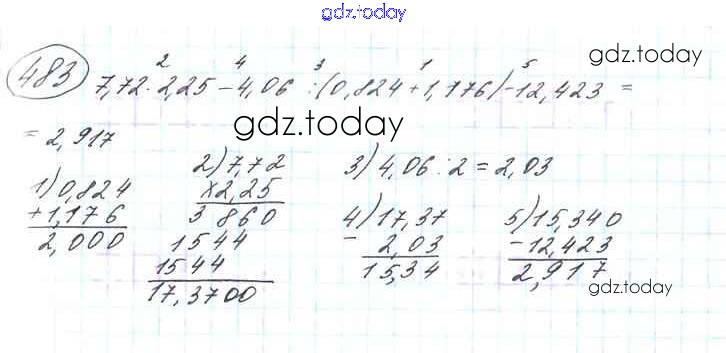 gdz.today
483
2 4 3 1 5
gdz.today
7,72 · 2,25 - 4,06 : (0,824 + 1,176) - 12,423 =
= 2,917
gdz.today
1) 0,824
+ 1,176
2,000
2) 7,72
x 2,25
3 860
1544
1544
17,3700
3) 4,06 : 2 = 2,03
4) 17,37
- 2,03
15,34
5) 15,340
- 12,423
2,917
gdz.today